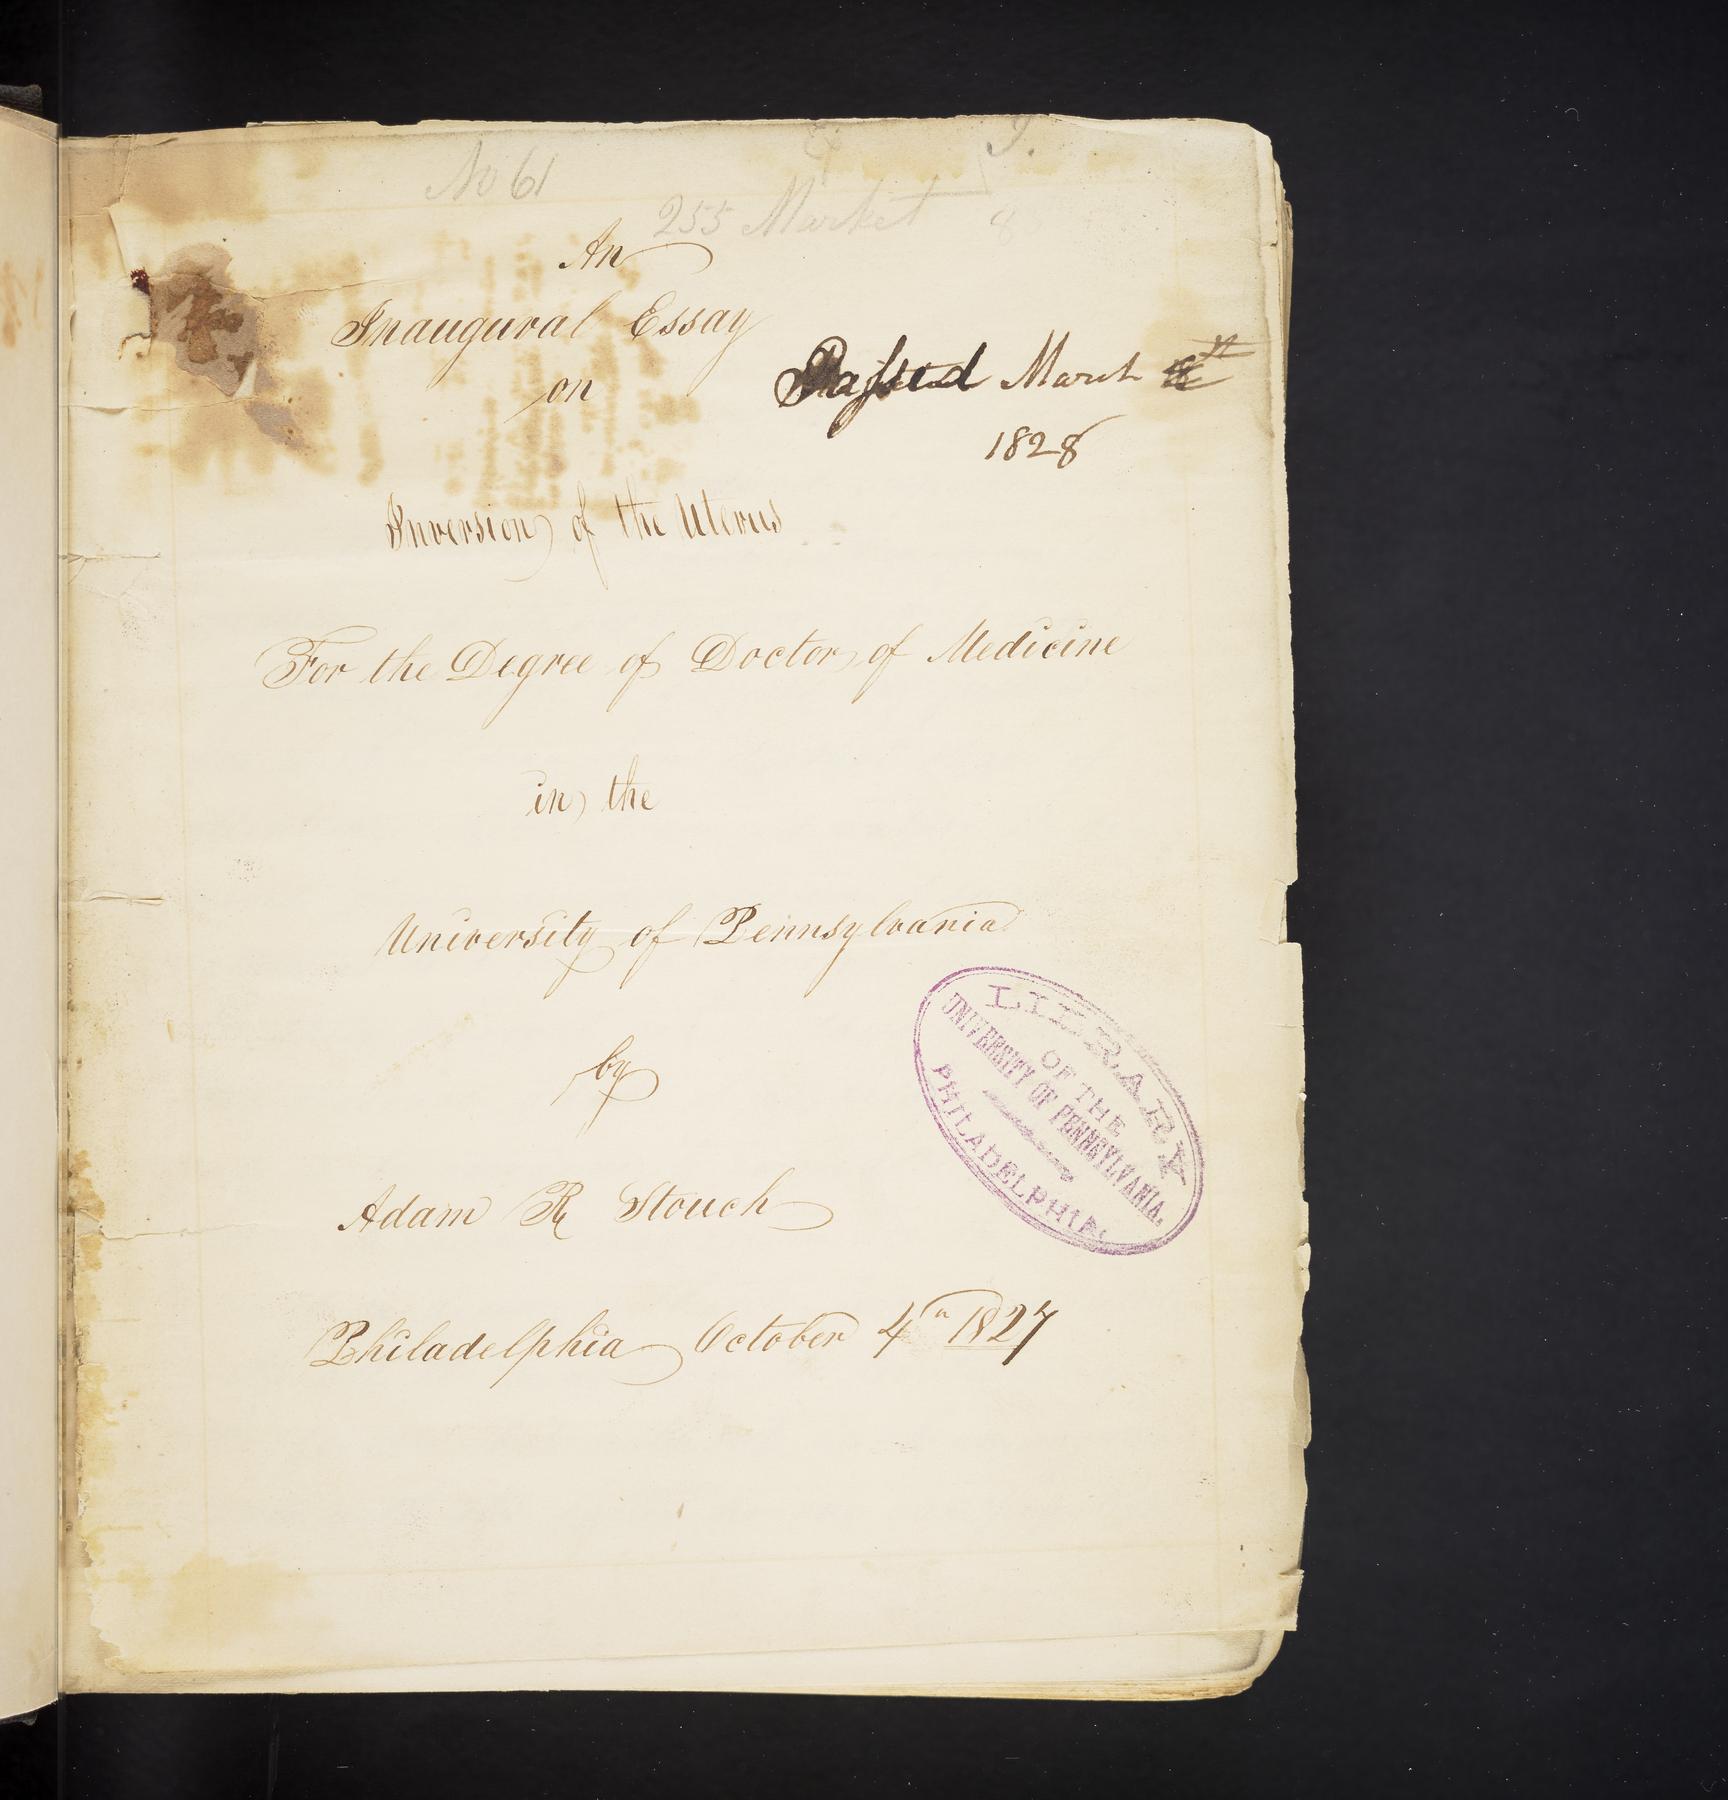 No 61
255 Market
An
Inaugural Essay
on
Passed March
1828
Inversion of the Uterus
For the Degree of Doctor of Medicine
in the
University of Pennsylvania
by
Adam R Stouch
Philadelphia October 4th 1827
LIBRARY
OF THE
UNIVERSITY OF PENNSYLVANIA.
PHILADELPHIA.